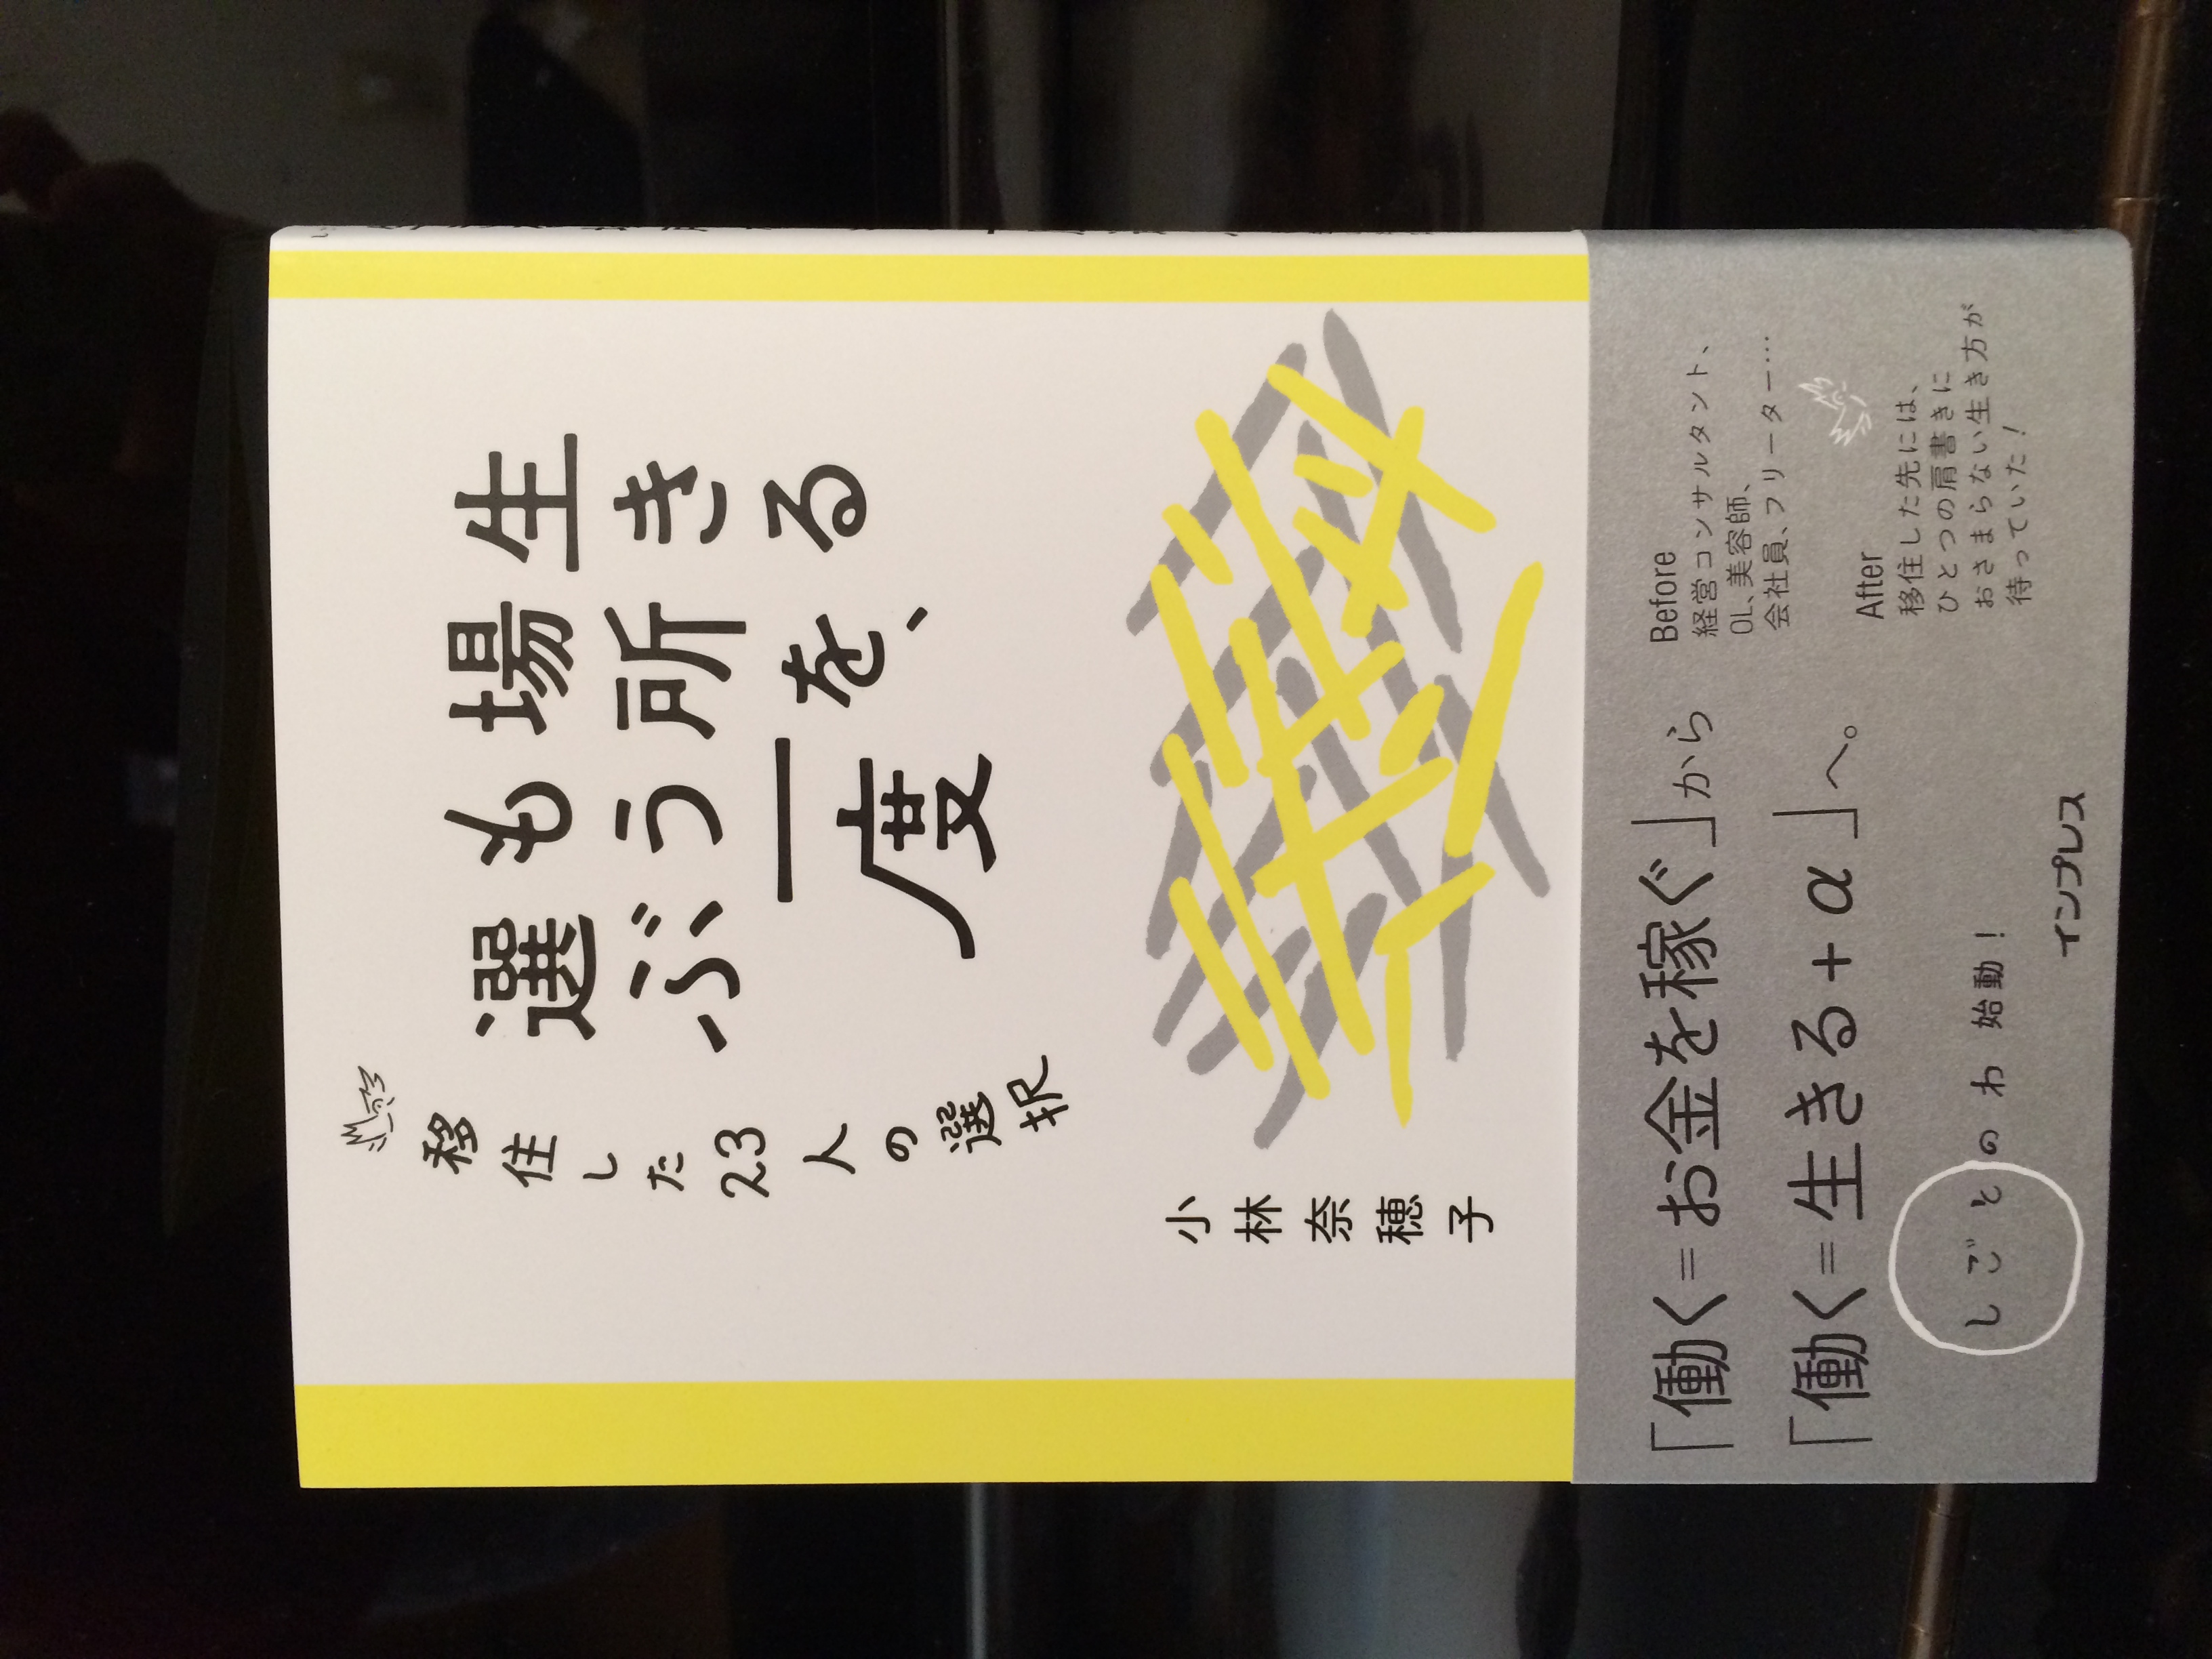 生きる
場所を、
もう一度
選ぶ
移住した23人の選択
小林奈穂子
「働く=お金を稼ぐ」から
「働く=生きる+α」へ。
Before
経営コンサルタント、
OL、美容師、
会社員、フリーター…
After
移住した先には、
ひとつの肩書きに
おさまらない生き方が
待っていた！
しごとのわ 始動！
インプレス